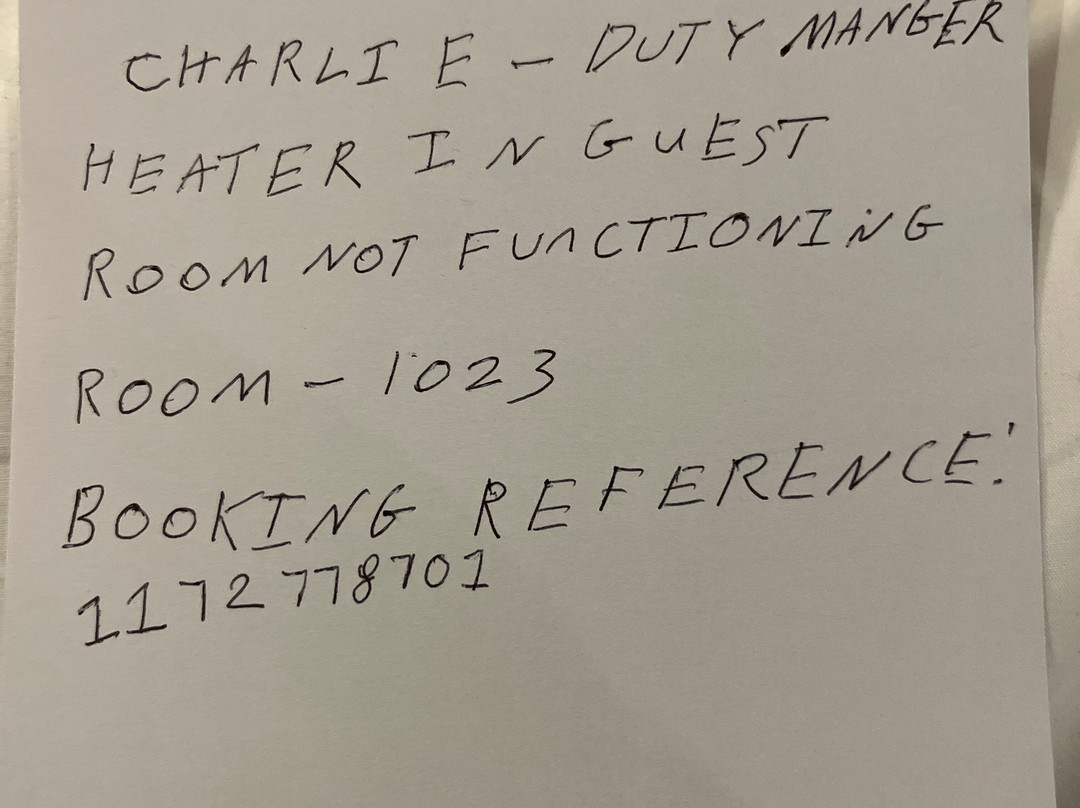 CHARLIE - DUTY MANGER
HEATER IN GUEST
ROOM NOT FUNCTIONING
ROOM - 1023
BOOKING REFERENCE:
1172778701